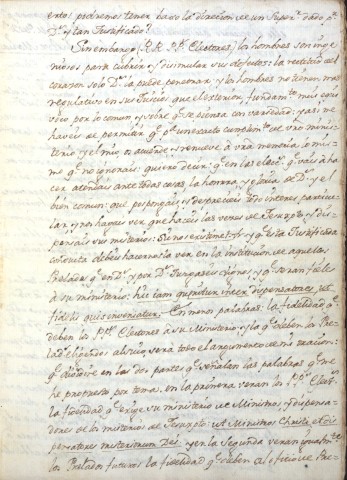 esto: podremos tener bajo la direccion de un Super.r dado p.r
D.s y tan Justificado?
Sin embargo R.R. P.P. Electores, los hombres son inge
niosos para cubrir y disimular sus defectos: la rectitud del
corazon solo D.s la puede penetrar, y los hombres no tienen mas
regulativo en sus Juicios que el exterior, fundam.to mui equi
voco por lo comun, y sobre q.e se piensa con variedad: y asi me
haveis de permitir q.e p.a un exacto cumplim.to de vro minis
terio, y el mio, os aiude, y renueve a vra memoria, lo mis
mo q.e no ignorais: quiero decir: q.e en las elecc.s q.e vais a ha
cer atendais ante todas cosas la honrra, y gloria de D.s y el
bien comun: que pospongais, y desprecieis todo interes particu
lar, y nos hagais ver que haceis las veces de Jesuxpto, y dis
pensais sus misterios: Sic nos existimet &.a y q.e esta Justificada
conducta debeis hacerla ver en la institucion de aquellos
Prelados q.e en D.s y por D.s Juzgareis dignos, y q.e seran fieles
a su ministerio: hic iam quæritur inter dispensatores, ut
fidelis quis inveniatur. En menos palabras: la fidelidad q.e
deben los P.P. Electores a su Ministerio, y la q.e deben los Pre
lados elegidos al suyo sera todo el argumento de mi oracion:
que dividire en las dos partes q.e señalan las palabras q.e me
he propuesto por tema. en la primera veran los P.P. Elect.s
la fidelidad q.e exige un ministerio de Ministros, y dispensa
dores de los misterios de Jesuxpto: ut Ministros Christi, et dis
pensatores misteriorum Dei. y en la Segunda veran igualm.te
los Prelados futuros la fidelidad q.e deben al oficio de Pre-